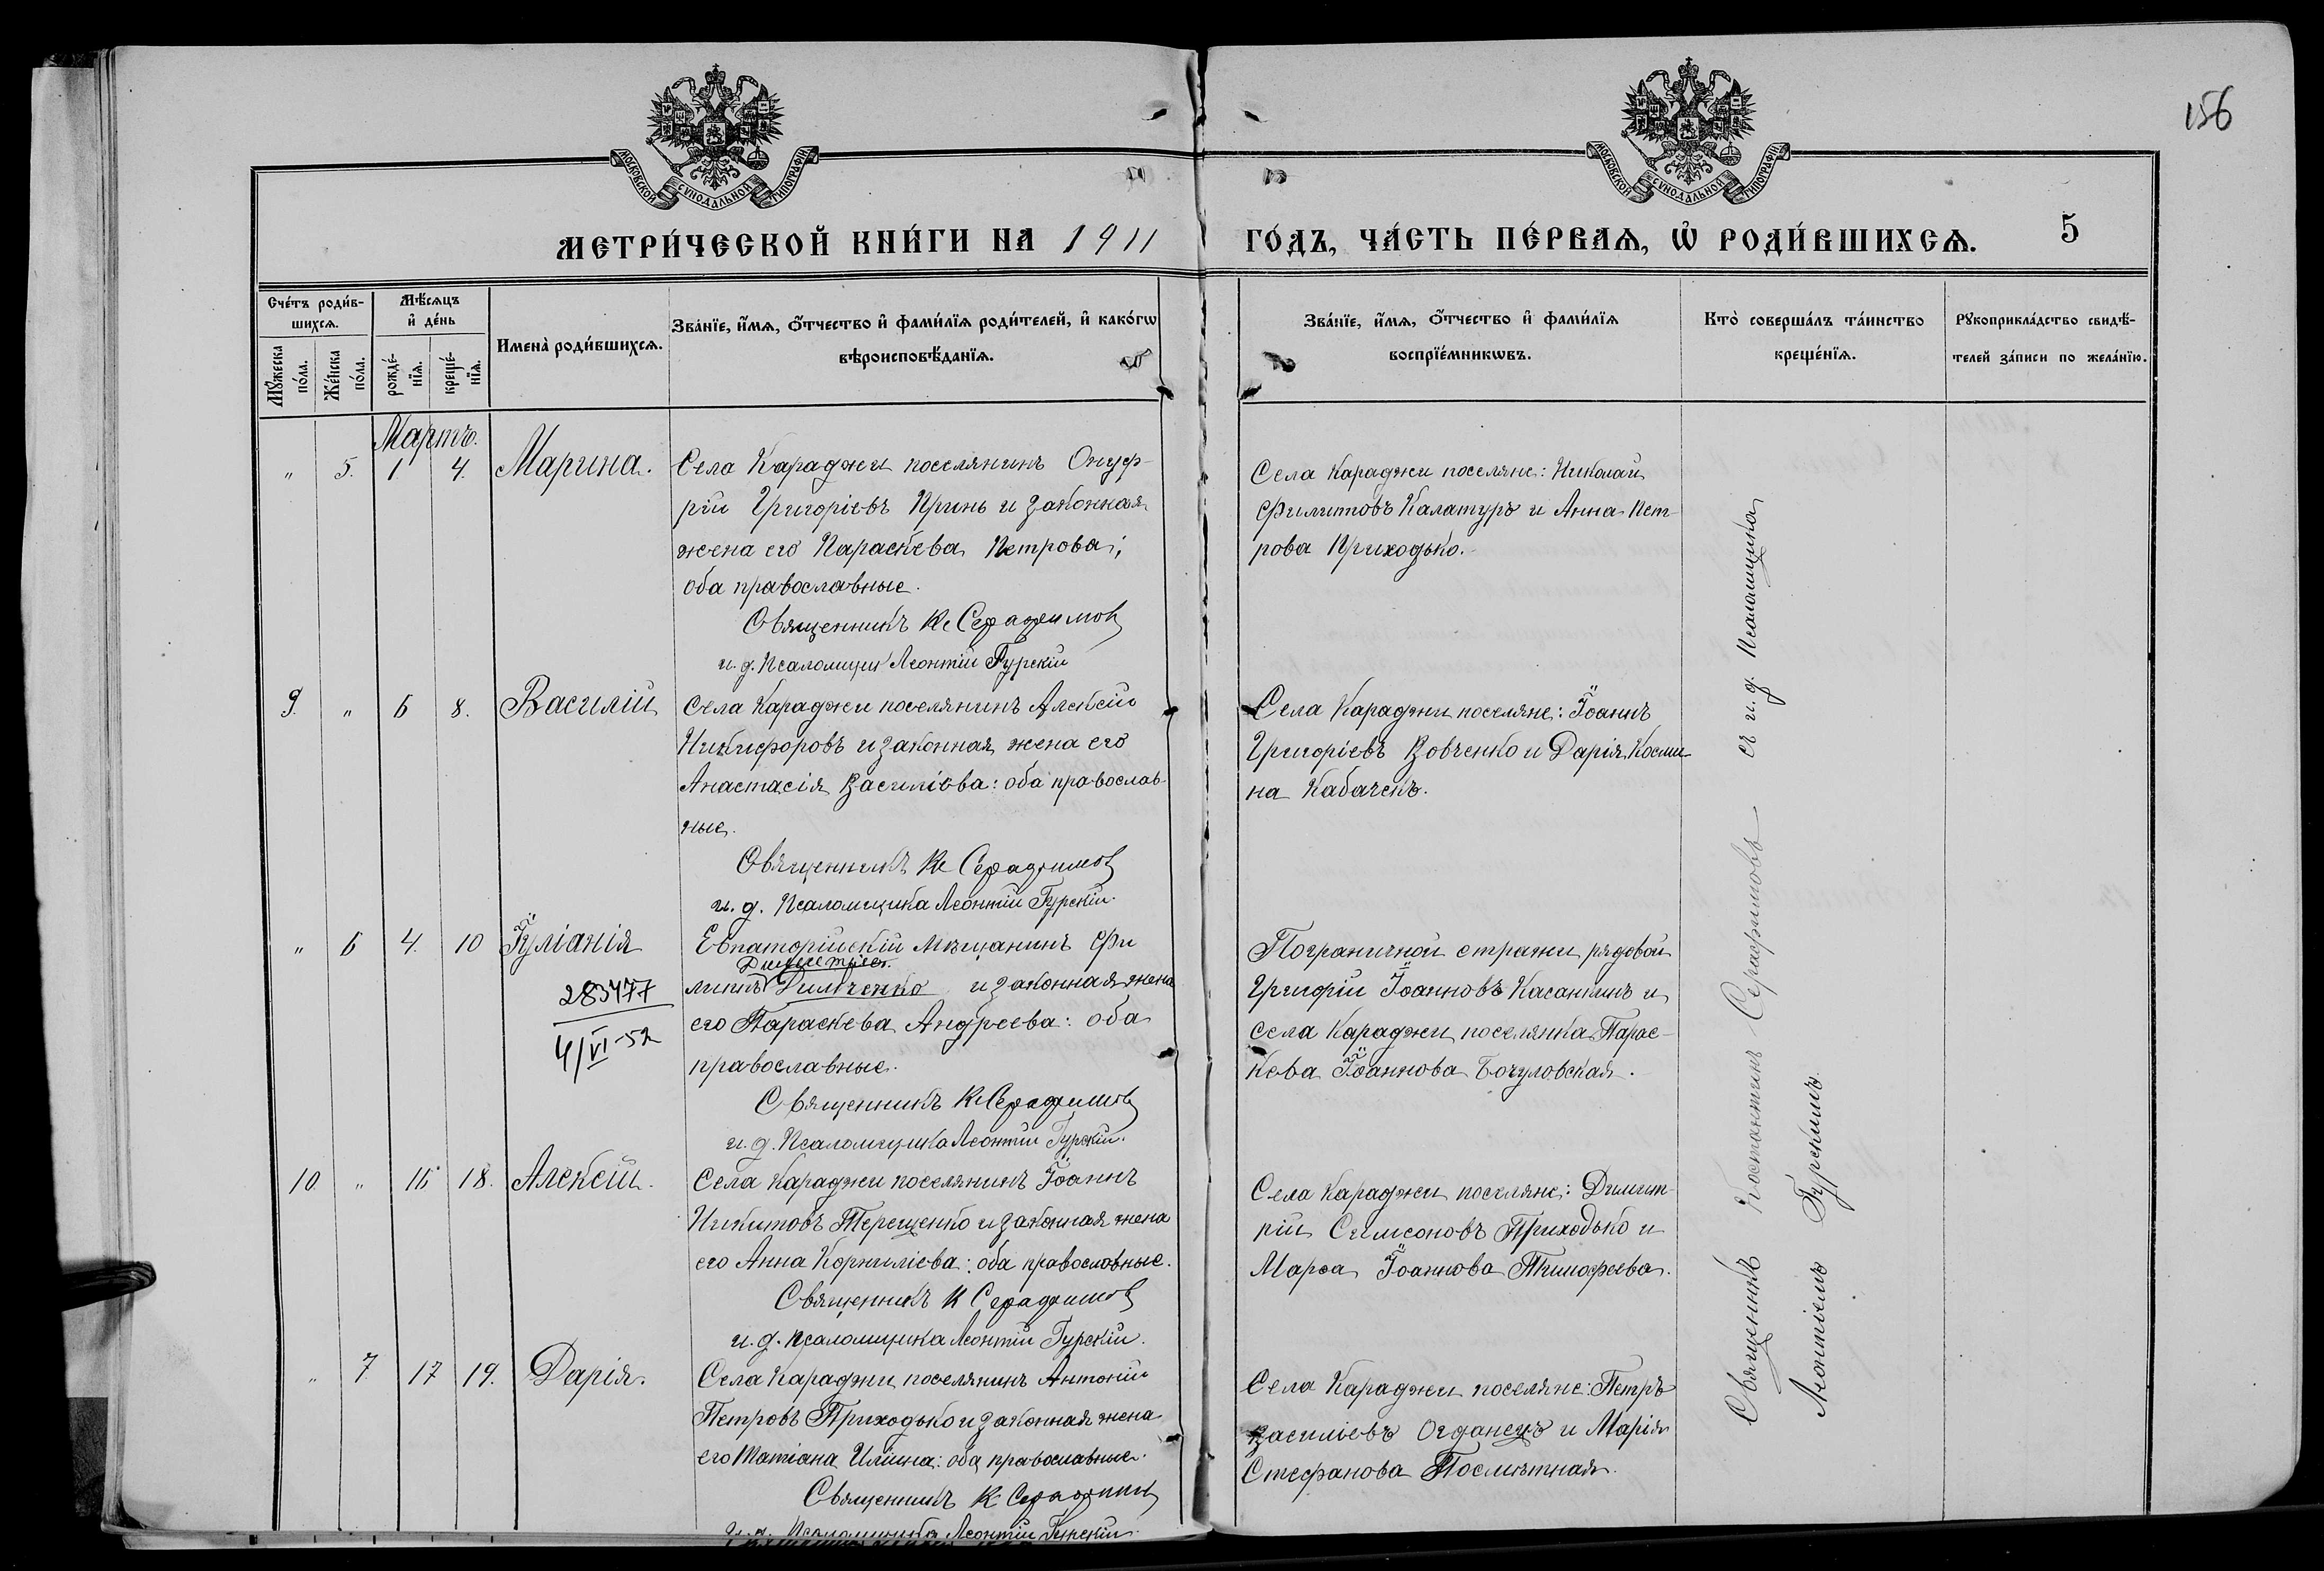 156
МОСКОВСКОЙ СѴНОДАЛЬНОЙ ТИПОГРАФІИ
МОСКОВСКОЙ СѴНОДАЛЬНОЙ ТИПОГРАФІИ
МЕТРИ́ЧЕСКОЙ КНИ́ГИ НА 1911 ГО́ДЪ, ЧА́СТЬ ПЕ́РВАѦ, Ѡ҆ РОДИ́ВШИХСѦ. 5
Сче́тъ роди́в-
шихсѧ.
Мꙋ́жеска по́ла.
Же́нска по́ла.
Мѣ́сѧцъ
и҆ де́нь
рожде́-
нїѧ.
креще́-
нїѧ.
Имена̀ роди́вшихсѧ.
Зва́нїе, и҆́мѧ, ѻ҆́тчество и҆ фами́лїѧ роди́телей, и҆ како́гѡ
вѣроисповѣ́данїѧ.
Зва́нїе, и҆́мѧ, ѻ҆́тчество и҆ фами́лїѧ
воспрїе́мникѡвъ.
Кто̀ соверша́лъ та́инство
креще́нїѧ.
Рꙋкоприкла́дство свидѣ́-
телей за́писи по жела́нїю.
Мартъ.
" 5. 1 4. Марина.
Села Караджи поселянинъ Онуф-
рій Григоріевъ Принь и законная
жена его Параскева Петрова;
оба православные.
Священникъ К Серафимов
и. д. Псаломщик Леонтій Гурскій
Села Караджи поселяне: Николай
Филиповъ Калатуръ и Анна Пет-
рова Приходько.
9. " 6 8. Василій
Села Караджи поселянинъ Алексій
Никифоровъ и законная жена его
Анастасія Василіева: оба православ-
ные.
Священникъ К Серафимов
и. д. Псаломщика Леонтій Гурскій.
Села Караджи поселяне: Іоаннъ
Григоріевъ Вовченко и Дарія Косми-
на Кабачекъ.
" 6 4. 10 Іуліанія
283477
4/VI-52
Евпаторійскій мѣщанинъ Фи
липпъ Димченко и законная жена
его Параскева Андреева: оба
православные.
Священникъ К Серафимов
и. д. Псаломщика Леонтій Гурскій.
Пограничной стражи рядовой
Григорій Іоанновъ Касанкинъ и
села Караджи поселянка Парас-
кева Іоаннова Бочуловская.
10. " 15 18. Алексій.
Села Караджи поселянинъ Іоаннъ
Никитовъ Терещенко и законная жена
его Анна Корниліева: оба православные.
Священникъ К Серафимов
и. д. псаломщика Леонтій Гурскій.
Села Караджи поселяне: Димит-
рій Симсоновъ Приходько и
Марѳа Іоаннова Тимофеева.
" 7. 17 19. Дарія.
Села Караджи поселянинъ Антоній
Петровъ Приходько и законная жена
его Татіана Иліина: оба православные.
Священникъ К Серафимов
и. д. Псаломщика Леонтій Гурскій.
Села Караджи поселяне: Петръ
Василіевъ Огданецъ и Марія
Стефанова Посмѣтная.
Священникъ Константинъ Серафимовъ съ и. д. Псаломщика
Леонтіемъ Гурскимъ.